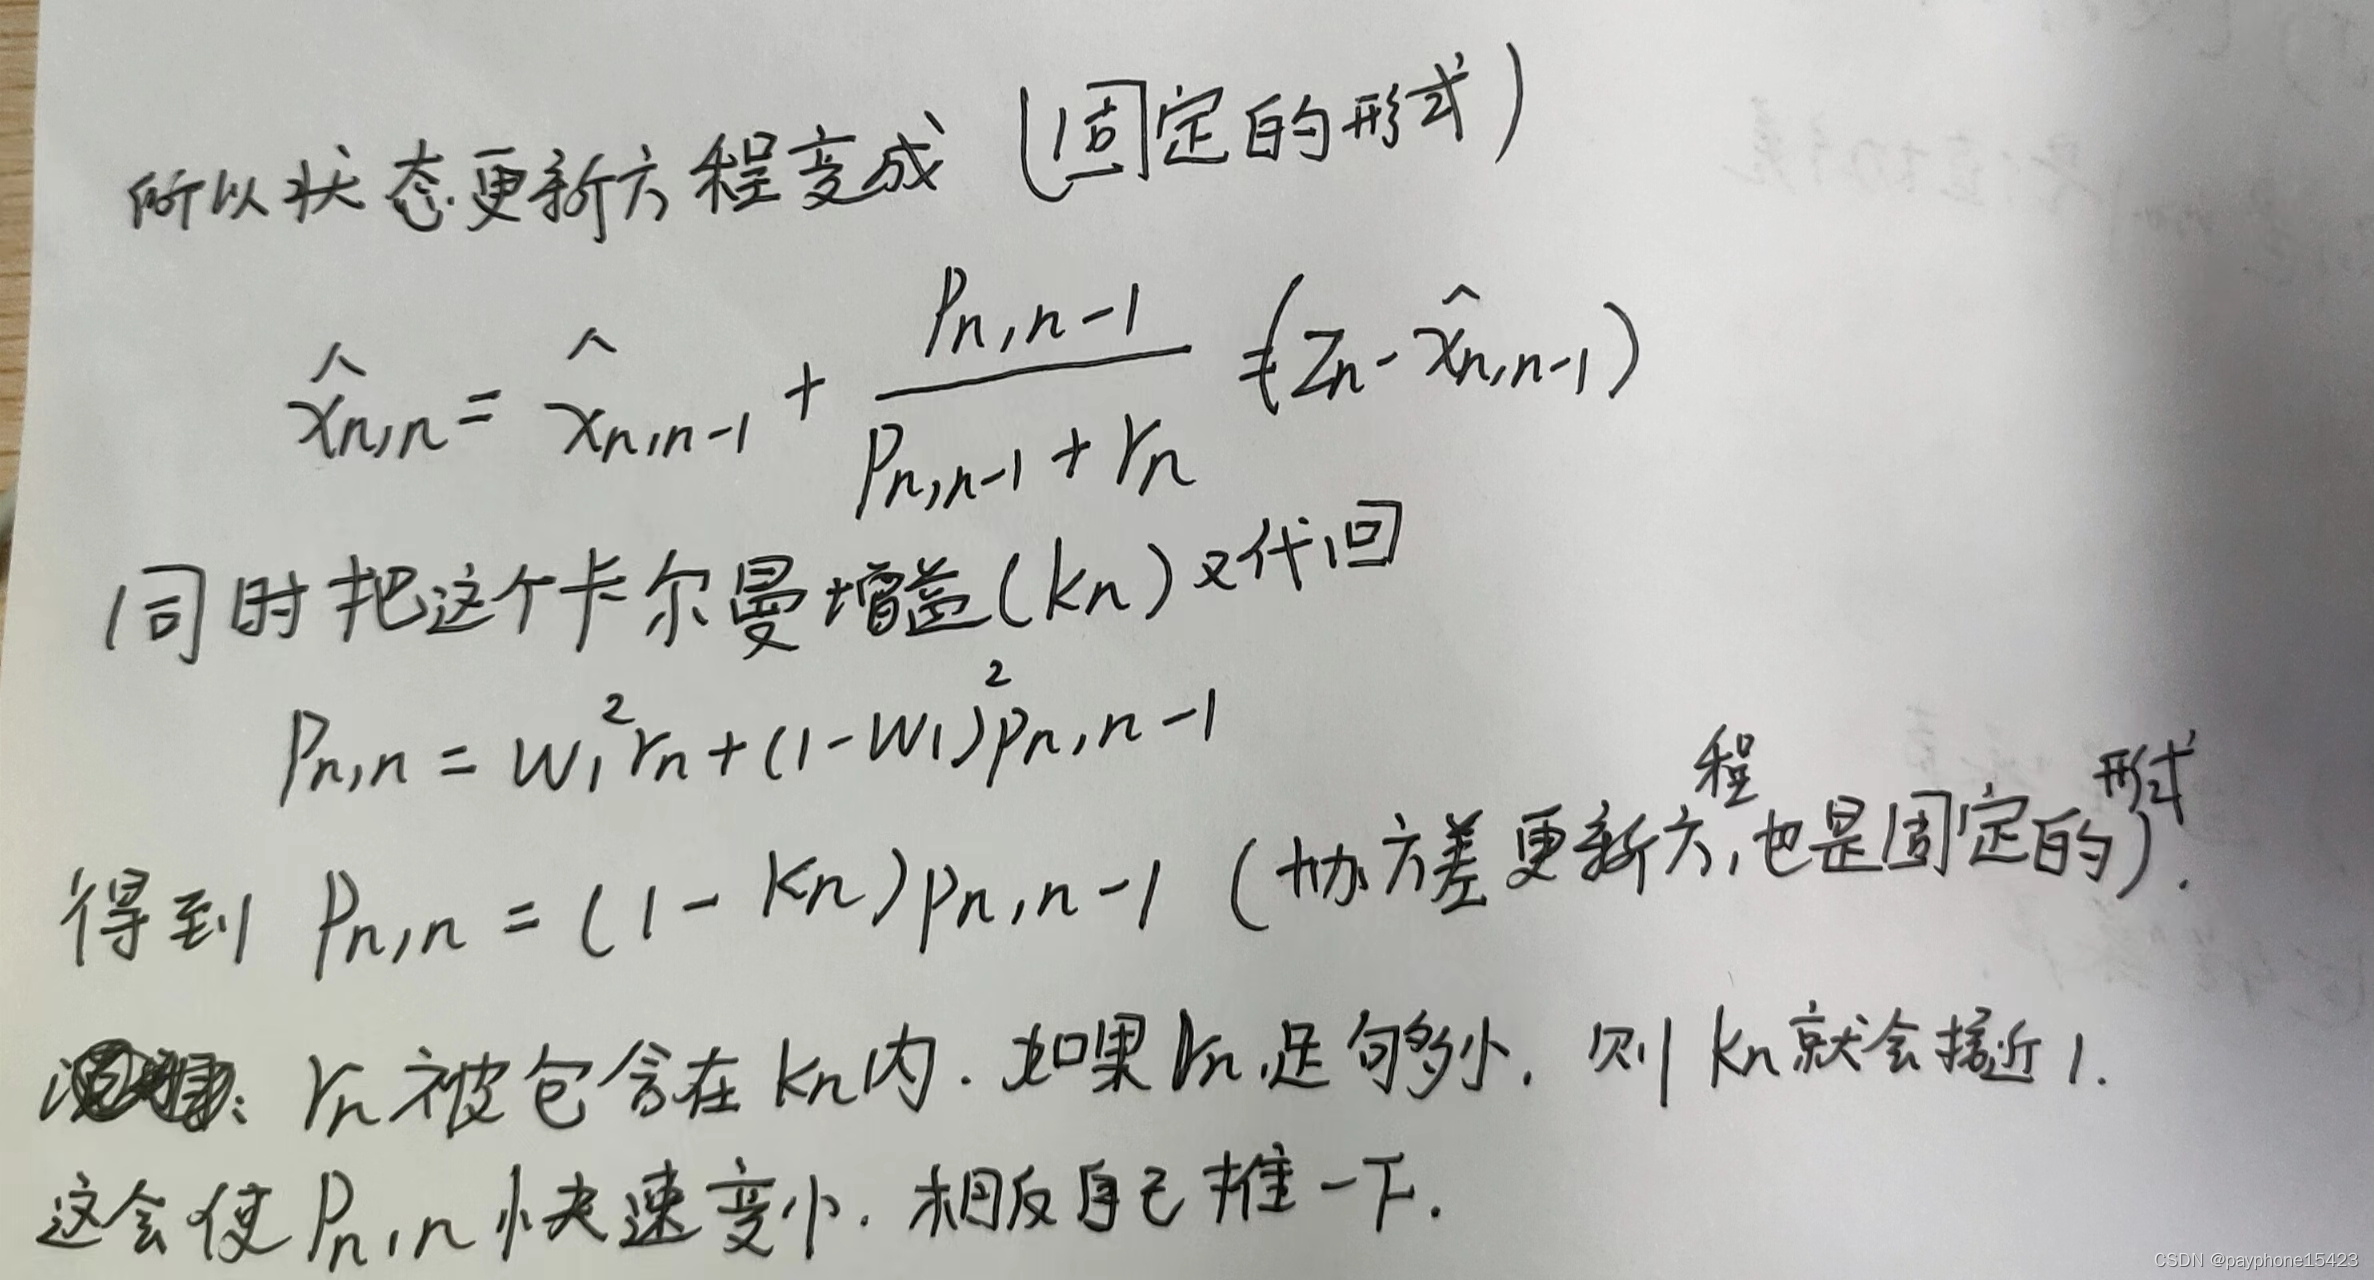 所以状态更新方程变成（固定的形式）
x̂n,n = x̂n,n-1 + Pn,n-1 / (Pn,n-1 + rn) (Zn - x̂n,n-1)
同时把这个卡尔曼增益(kn)又代回
Pn,n = w1²rn + (1-w1)²Pn,n-1
得到 Pn,n = (1-kn)Pn,n-1 (协方差更新方程,也是固定的形式).
rn被包含在kn内.如果rn足够小,则kn就会接近1.
这会使Pn,n快速变小.相反自己推一下.
CSDN @payphone15423